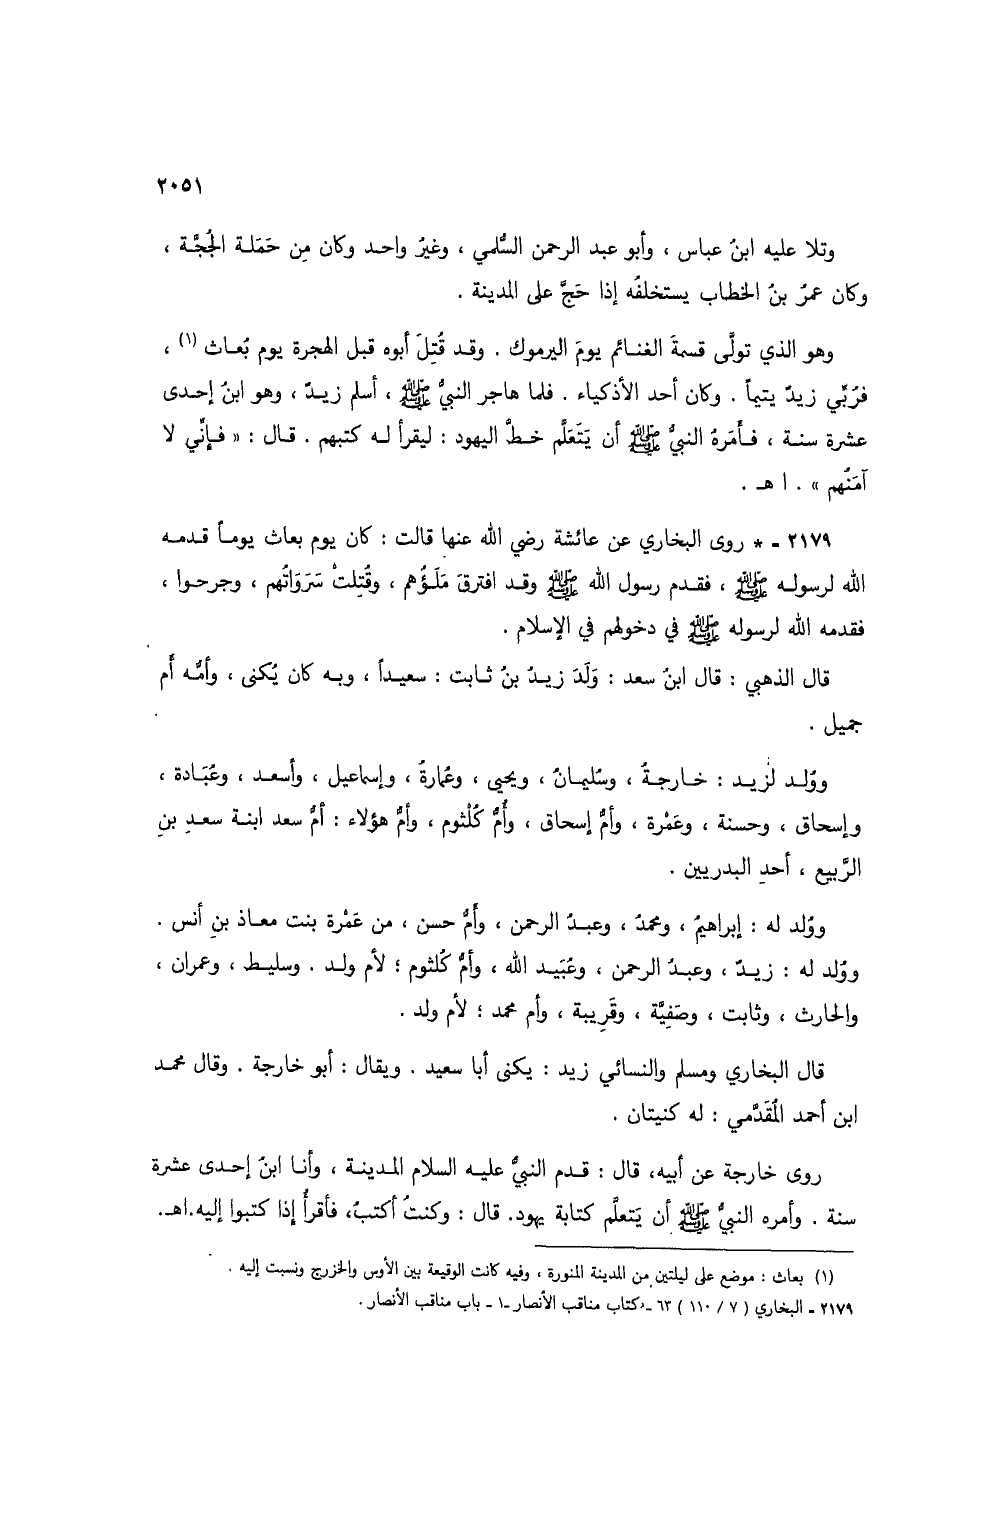 ٢٠٥١
وتلا عليه ابنُ عباس ، وأبو عبد الرحمن السُّلمي ، وغيرُ واحد وكان مِن حَمَلة الحُجَّة ،
وكان عمرُ بنُ الخطاب يستخلفُه إذا حَجَّ على المدينة .
وهو الذي تولَّى قسمةَ الغنائم يومَ اليرموك . وقد قُتِلَ أبوه قبل الهجرة يوم بُعاث (١) ،
فرُبِّي زيدٌ يتيماً . وكان أحد الأذكياء . فلما هاجر النبيُّ ﷺ ، أسلم زيدٌ ، وهو ابنُ إحدى
عشرة سنة ، فأَمَرهُ النبيُّ ﷺ أن يَتَعَلَّم خطَّ اليهود : ليقرأ له كتبهم . قال : « فإنِّي لا
آمَنُهم » . ا هـ .
٢١٧٩ ـ * روى البخاري عن عائشة رضي الله عنها قالت : كان يوم بعاث يوماً قدمه
الله لرسوله ﷺ ، فقدم رسول الله ﷺ وقد افترقَ مَلَؤُهم ، وقُتِلتْ سَرَوَاتُهم ، وجرحوا ،
فقدمه الله لرسوله ﷺ في دخولهم في الإسلام .
قال الذهبي : قال ابنُ سعد : وَلَدَ زيدُ بنُ ثابت : سعيداً ، وبه كان يُكنى ، وأمُّه أُم
جميل .
ووُلد لزيد : خارجةُ ، وسُليمانُ ، ويحيى ، وعُمارةُ ، وإسماعيل ، وأسعد ، وعُبَادة ،
وإسحاق ، وحسنة ، وعَمْرة ، وأمُّ إسحاق ، وأُمُّ كُلْثوم ، وأمُّ هؤلاء : أمُّ سعد ابنة سعدِ بنِ
الرَّبيع ، أحدِ البدريين .
ووُلد له : إبراهيمُ ، ومحمدُ ، وعبدُ الرحمن ، وأُمُّ حسن ، من عَمْرة بنت معاذ بنِ أنس .
ووُلد له : زيدٌ ، وعبدُ الرحمن ، وعُبَيد الله ، وأمُّ كُلثوم ؛ لأم ولد . وسليط ، وعمران ،
والحارث ، وثابت ، وصَفِيَّة ، وقَرِيبة ، وأم محمد ؛ لأم ولد .
قال البخاري ومسلم والنسائي زيد : يكنى أبا سعيد . ويقال : أبو خارجة . وقال محمد
ابن أحمد المُقَدَّمي : له كنيتان .
روى خارجة عن أبيه، قال : قدم النبيُّ عليه السلام المدينة ، وأنا ابنُ إحدى عشرة
سنة . وأمره النبيُّ ﷺ أن يَتعلَّم كتابة يهود. قال : وكنتُ أكتبُ، فأقرأُ إذا كتبوا إليه.اهـ.
(١) بعاث : موضع على ليلتين من المدينة المنورة ، وفيه كانت الوقيعة بين الأوس والخزرج ونسبت إليه .
٢١٧٩ ـ البخاري ( ٧ / ١١٠ ) ٦٣ ـ كتاب مناقب الأنصار ـ ١ ـ باب مناقب الأنصار .